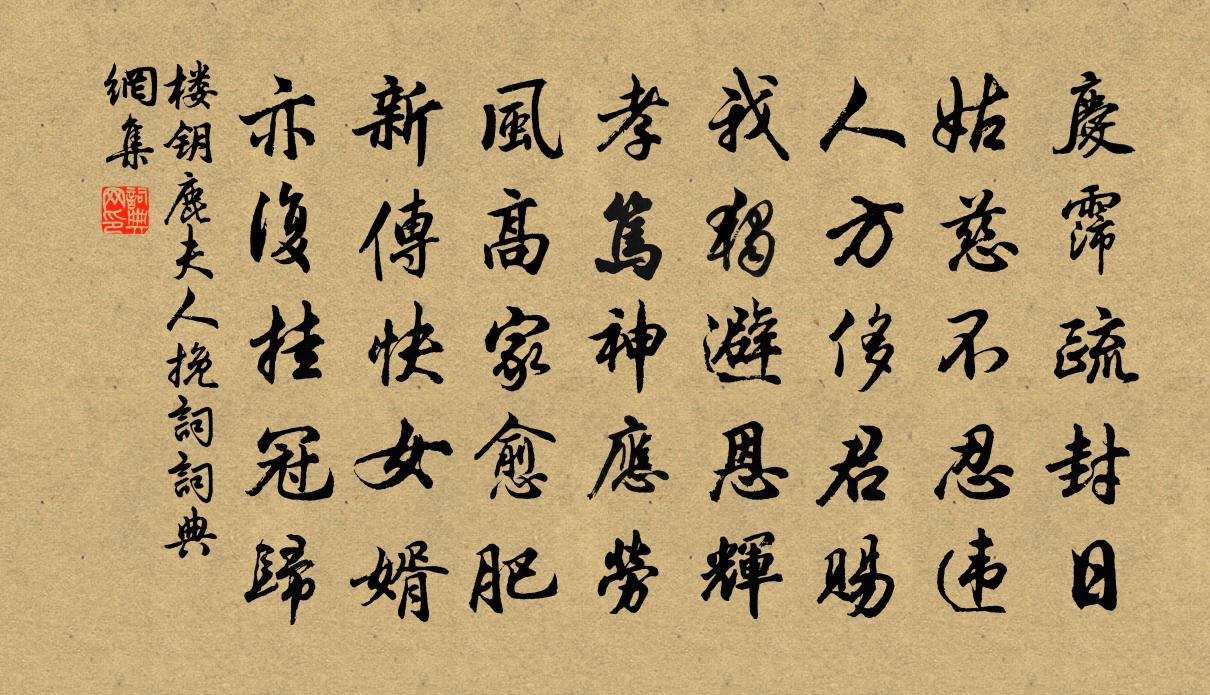 慶霈疏封日
姑慈不忍违
人方侈君賜
我獨避恩輝
孝篤神應勞
風高家愈肥
新傳快女婿
亦復挂冠歸
楼钥鹿夫人挽詞詞典
網集
詞典
网印